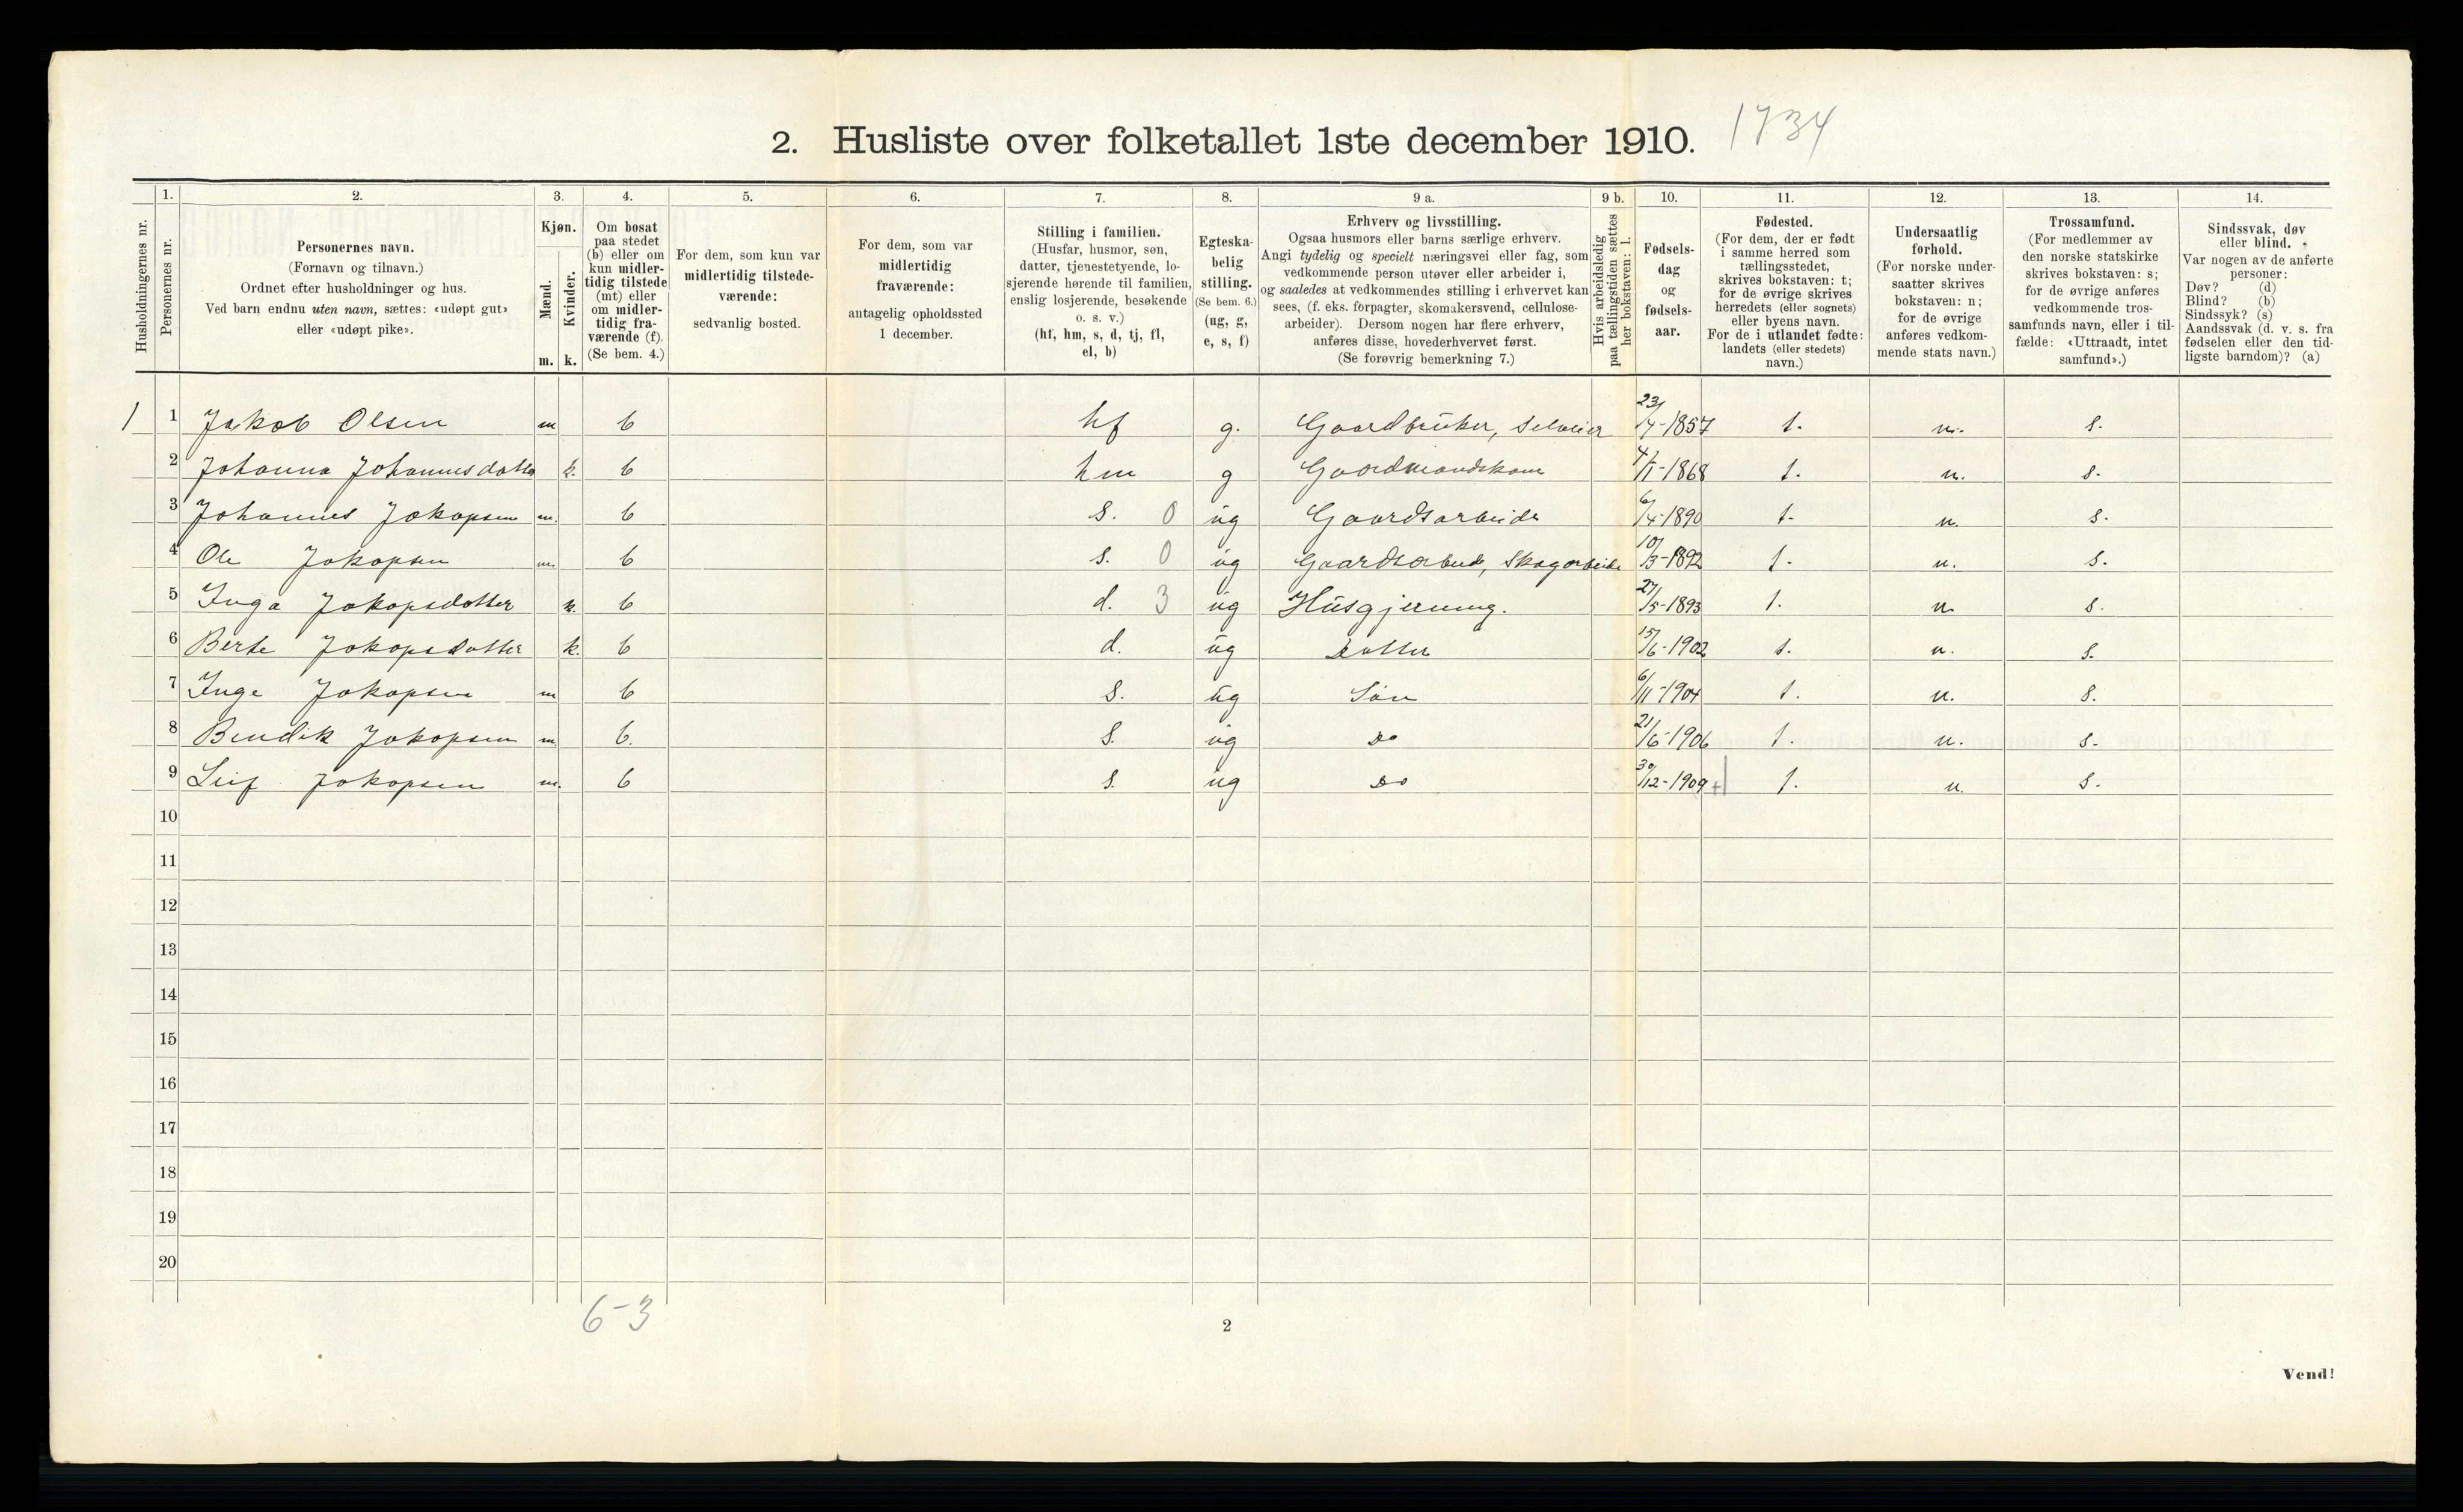 2. Husliste over folketallet 1ste december 1910. 1734
1. 2. 3. 4. 5. 6. 7. 8. 9 a. 9 b. 10. 11. 12. 13. 14.
Husholdningernes nr.
Personernes nr.
Personernes navn.
(Fornavn og tilnavn.)
Ordnet efter husholdninger og hus.
Ved barn endnu uten navn, sættes: «udøpt gut»
eller «udøpt pike».
Kjøn.
Mænd.
Kvinder.
m. k.
Om bosat
paa stedet
(b) eller om
kun midler-
tidig tilstede
(mt) eller
om midler-
tidig fra-
værende (f).
(Se bem. 4.)
For dem, som kun var
midlertidig tilstede-
værende:
sedvanlig bosted.
For dem, som var
midlertidig
fraværende:
antagelig opholdssted
1 december.
Stilling i familien.
(Husfar, husmor, søn,
datter, tjenestetyende, lo-
sjerende hørende til familien,
enslig losjerende, besøkende
o. s. v.)
(hf, hm, s, d, tj, fl,
el, b)
Egteska-
belig
stilling.
(Se bem. 6.)
(ug, g,
e, s, f)
Erhverv og livsstilling.
Ogsaa husmors eller barns særlige erhverv.
Angi tydelig og specielt næringsvei eller fag, som
vedkommende person utøver eller arbeider i,
og saaledes at vedkommendes stilling i erhvervet kan
sees, (f. eks. forpagter, skomakersvend, cellulose-
arbeider). Dersom nogen har flere erhverv,
anføres disse, hovederhvervet først.
(Se forøvrig bemerkning 7.)
Hvis arbeidsledig
paa tællingstiden sættes
her bokstaven: l.
Fødsels-
dag
og
fødsels-
aar.
Fødested.
(For dem, der er født
i samme herred som
tællingsstedet,
skrives bokstaven: t;
for de øvrige skrives
herredets (eller sognets)
eller byens navn.
For de i utlandet fødte:
landets (eller stedets)
navn.)
Undersaatlig
forhold.
(For norske under-
saatter skrives
bokstaven: n;
for de øvrige
anføres vedkom-
mende stats navn.)
Trossamfund.
(For medlemmer av
den norske statskirke
skrives bokstaven: s;
for de øvrige anføres
vedkommende tros-
samfunds navn, eller i til-
fælde: «Uttraadt, intet
samfund».)
Sindssvak, døv
eller blind.
Var nogen av de anførte
personer:
Døv? (d)
Blind? (b)
Sindssyk? (s)
Aandssvak (d. v. s. fra
fødselen eller den tid-
ligste barndom)? (a)
1 1 Jakob Olsen m b hf g. Gaardbruker, Selveier 23/4-1857 t. n. s.
2 Johanna Johannesdatter k. b hm g Gaardmandskone 4/1-1868 t. n. s.
3 Johannes Jakopsen m. b s. 0 ug Gaardsarbeide 6/4-1890 t. n. s.
4 Ole Jakopsen m. b s. 0 ug Gaardsarbeide, Skogarbeide 10/3-1892 t. n. s.
5 Inga Jakopsdatter k. b d. 3 ug Husgjerning. 27/5-1893 t. n. s.
6 Berte Jakopsdatter k. b d. ug Datter 15/6-1902 t. n. s.
7 Inge Jakopsen m b s. ug Søn 6/11-1904 t. n. s.
8 Bendik Jakopsen m b. s. ug Do 21/6-1906 t. n. s.
9 Leif Jakopsen m. b s. ug Do 30/12-1909 t. n. s.
10
11
12
13
14
15
16
17
18
19
20
6-3
2
Vend!